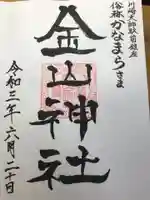 川崎大師駅前鎮座
俗称かなまらさま
金山神社
令和三年六月二十日